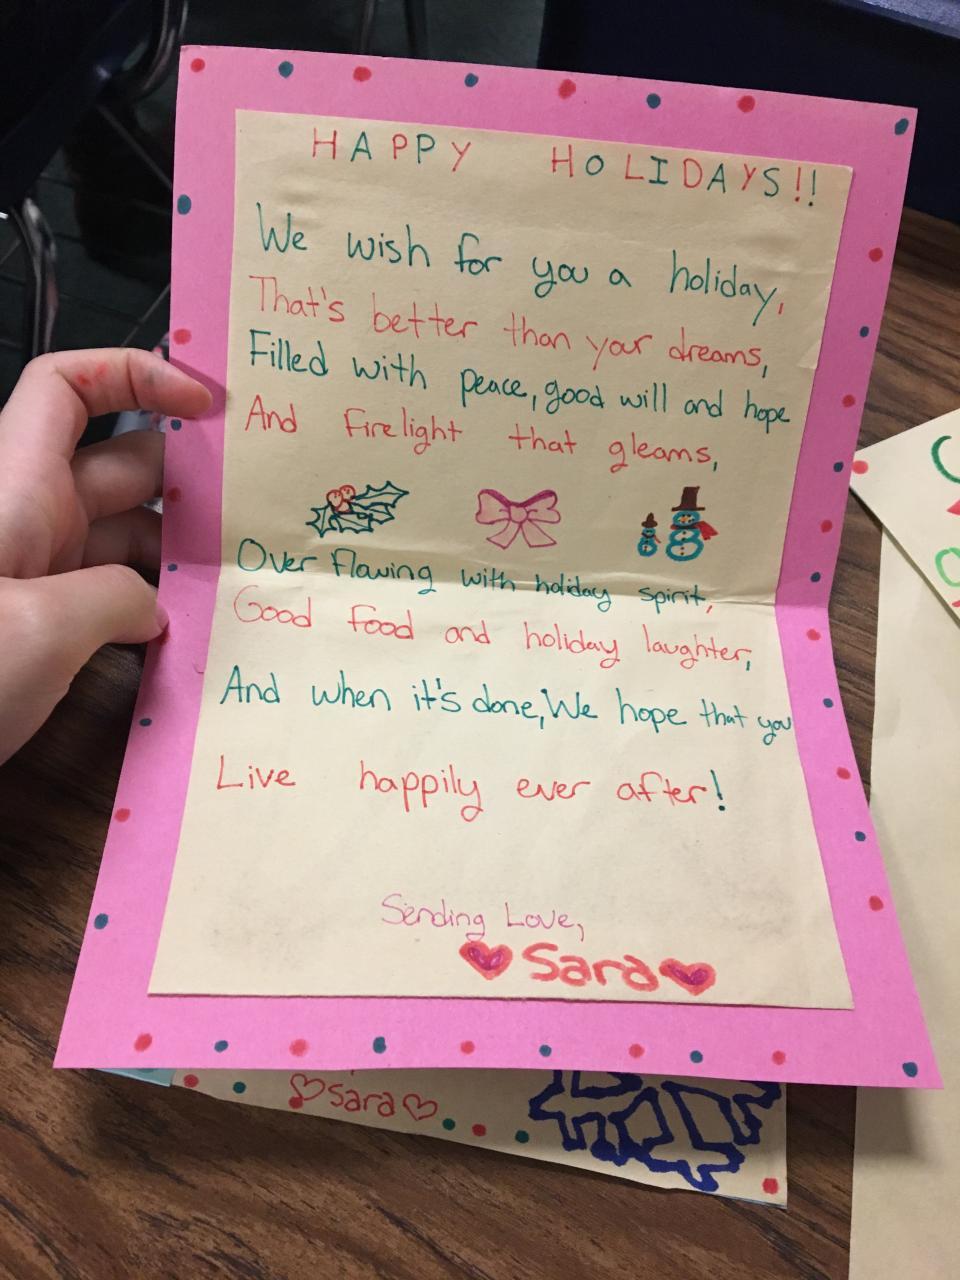 HAPPY HOLIDAYS!!
We wish for you a holiday,
That's better than your dreams,
Filled with peace, good will and hope
And firelight that gleams,
Over Flowing with holiday spirit,
Good food and holiday laughter,
And when it's done, We hope that you
Live happily ever after!
Sending Love,
Sara
Sara